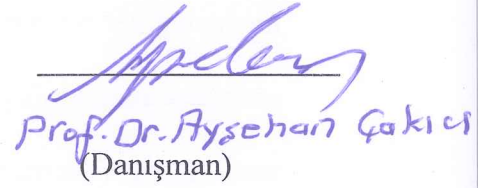 Prof. Dr. Ayşehan Çakıcı
(Danışman)